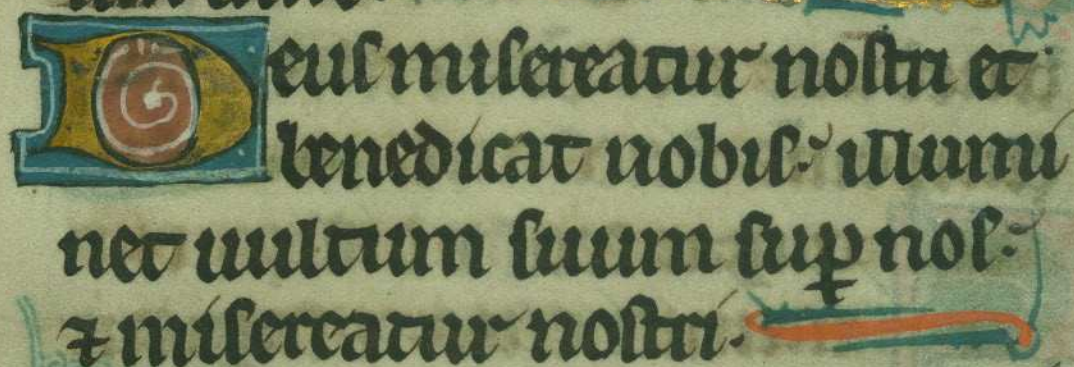 Deuſ miſereatur noſtri et
benedicat nobiſ: illumi
net uultum ſuum ſuꝑ noſ:
⁊ miſereatur noſtri.